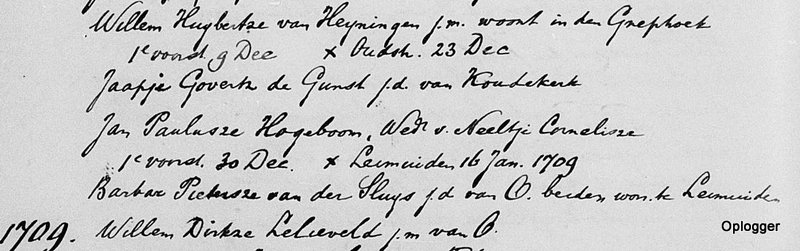 Willem Huybertze van Heyningen j.m. woont in den Gnephoek
1e voorst. 9 Dec x Oudsh. 23 Dec
Jaapje Govertz de Gunst j.d. van Koudekerk
Jan Paulusze Hogeboom, Wedr v. Neeltje Cornelisze
1e voorst. 30 Dec. x Leimuiden 16 Jan. 1709
Barbar Pietersze van der Sluys j.d van O. beiden won. te Leimuiden
1709. Willem Dirkze Lelieveld j.m van O.
Oplogger